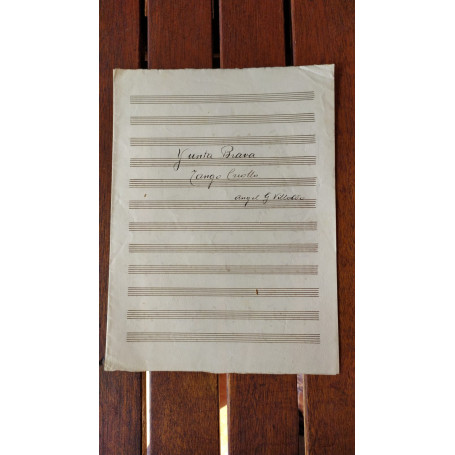 Yunta Brava
Tango Criollo
Angel G Villoldo